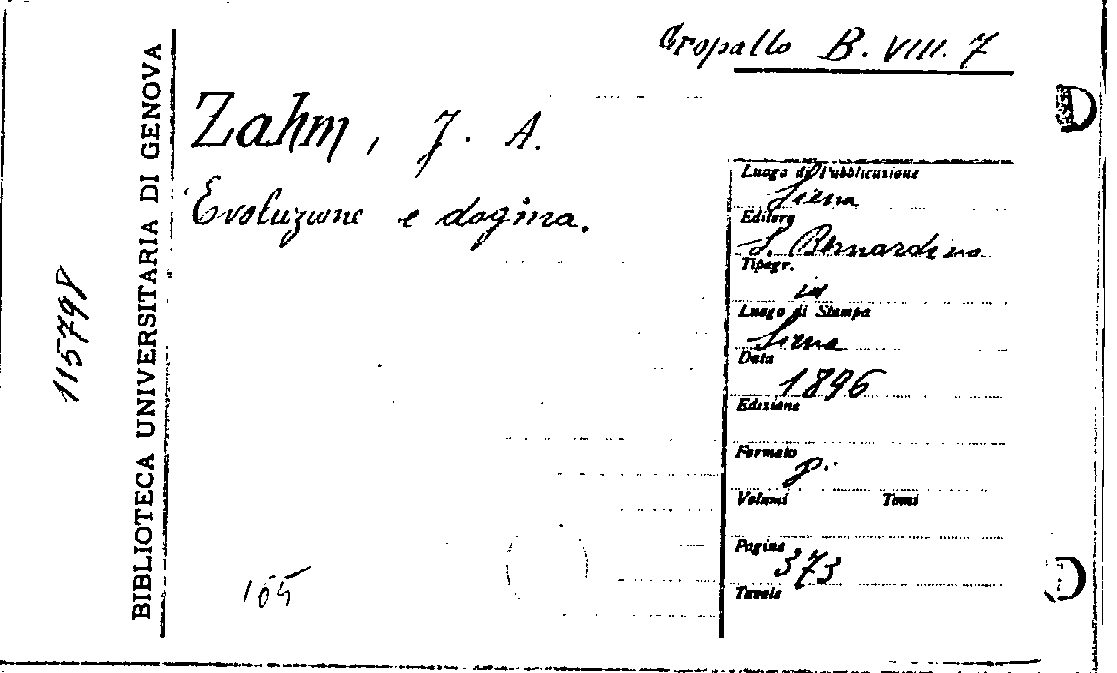 Gropallo B. VIII. 7
BIBLIOTECA UNIVERSITARIA DI GENOVA
115798
Zahm, J. A.
Evoluzione e dogma.
Luogo di Pubblicazione
Siena
Editore
S. Bernardino
Tipogr.
in
Luogo di Stampa
Siena
Data
1896
Edizione
Formato
8°
Volumi Tomi
Pagine
373
Tavole
165